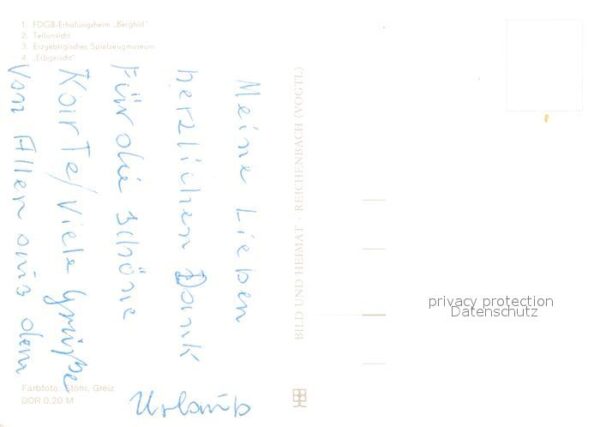 1. FDGB-Erholungsheim „Berghof"
2. Teilansicht
3. Erzgebirgisches Spielzeugmuseum
4. „Erbgericht"
Meine Lieben
herzlichen Dank
Für die schöne
Karte/Viele Grüße
von Allen aus dem
Urlaub
BILD UND HEIMAT · REICHENBACH (VOGTL)
privacy protection
Datenschutz
Farbfoto: Storr, Greiz
DDR 0,20 M